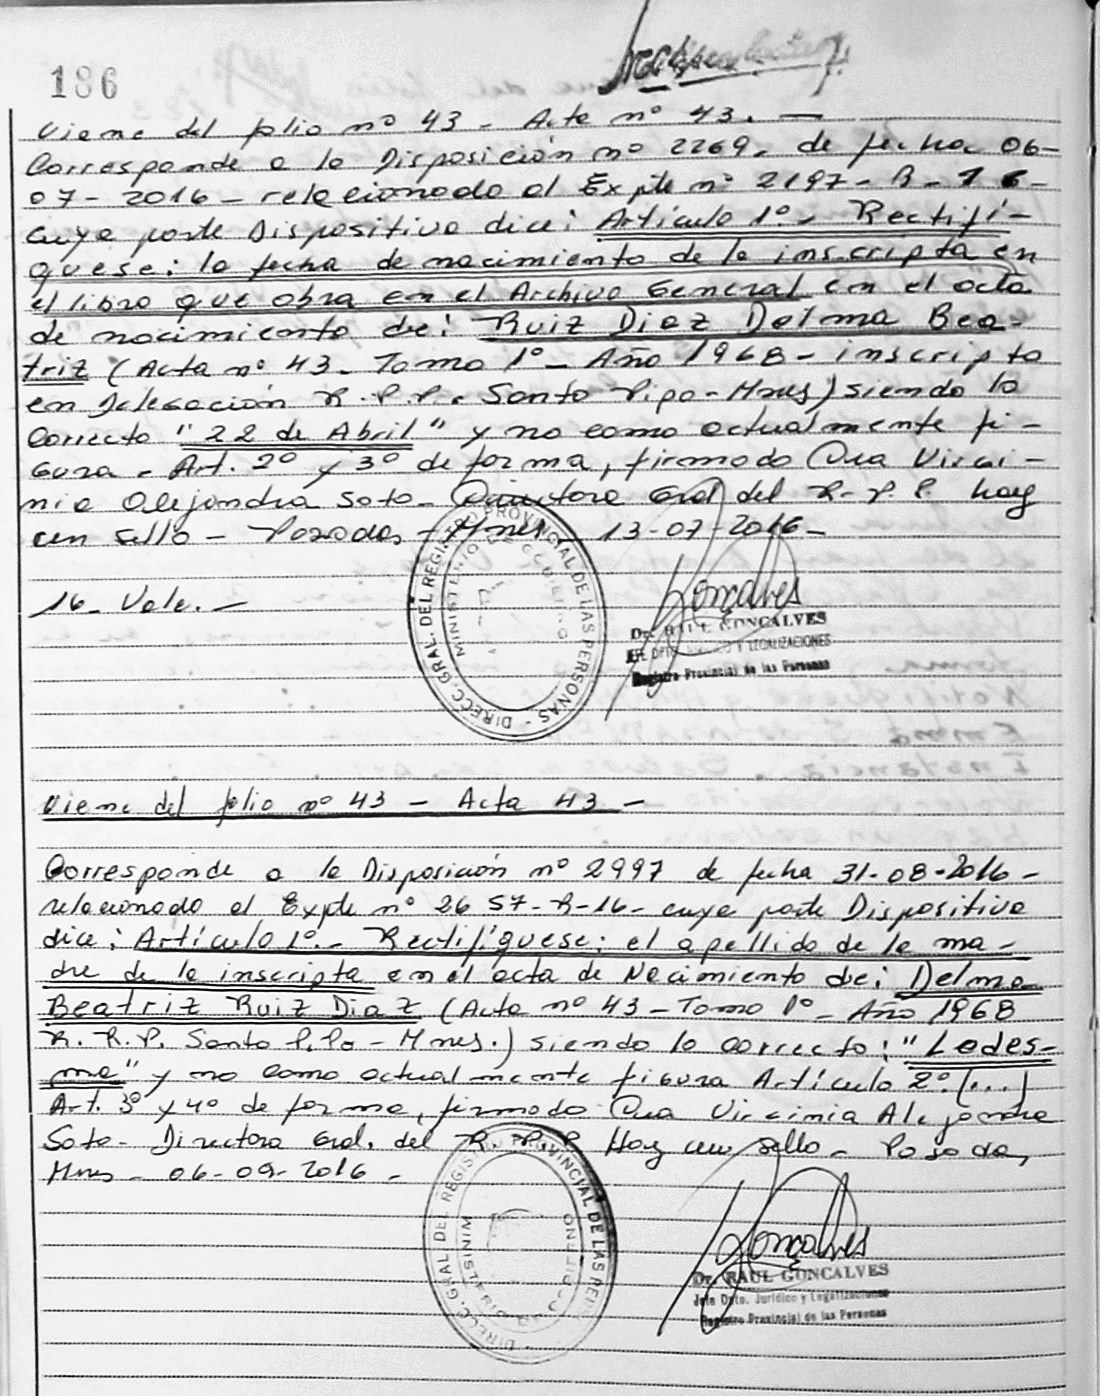 186
Viene del folio nº 43 - Acta nº 43. —
Corresponde a la Disposición nº 2269. de fecha 06-
07-2016 - relacionado al Expte nº 2197-R-16-
cuya parte Dispositiva dice: Artículo 1º.- Rectifí-
quese: la fecha de nacimiento de la inscripta en
el libro que obra en el Archivo General en el acta
de nacimiento de: Ruiz Diaz Delma Bea-
triz (Acta nº 43. Tomo 1º - Año 1968 - inscripta
en Delegación R.P.P. Santo Pipo-Mnes) siendo lo
Correcto "22 de Abril" y no como actualmente fi-
gura. Art. 2º y 3º de forma, firmado Dra Virgi-
nia Alejandra Soto - Directora Gral del R.P.P. hay
un sello - Posadas - Mnes. 13-07-2016 -
16- Vale. —
DIRECC. GRAL. DEL REGISTRO PROVINCIAL DE LAS PERSONAS -
MINISTERIO DE GOBIERNO
Goncalves
Dr. RAUL GONCALVES
JEFE DPTO. JURIDICO Y LEGALIZACIONES
Registro Provincial de las Personas
Viene del folio nº 43 - Acta 43 -
Corresponde a la Disposición nº 2997 de fecha 31-08-2016 -
relacionado al Expte nº 2657-R-16- cuya parte Dispositiva
dice: Artículo 1º.- Rectifíquese: el apellido de la ma-
dre de la inscripta en el acta de Nacimiento de: Delma
Beatriz Ruiz Diaz (Acta nº 43 - Tomo 1º - Año 1968
R.R.P. Santo Pipo - Mnes.) siendo lo correcto: "Ledes-
ma" y no como actualmente figura Artículo 2º. (...)
Art. 3º y 4º de forma, firmado Dra Virginia Alejandra
Soto - Directora Gral. del R.P.P. Hay un sello - Posadas,
Mnes - 06-09-2016 -
DIRECC. GRAL DEL REGISTRO PROVINCIAL DE LAS PERS
MINISTERIO DE GOBIERNO
Goncalves
Dr. RAUL GONCALVES
Jefe Dpto. Jurídico y Legalizaciones
Registro Provincial de las Personas